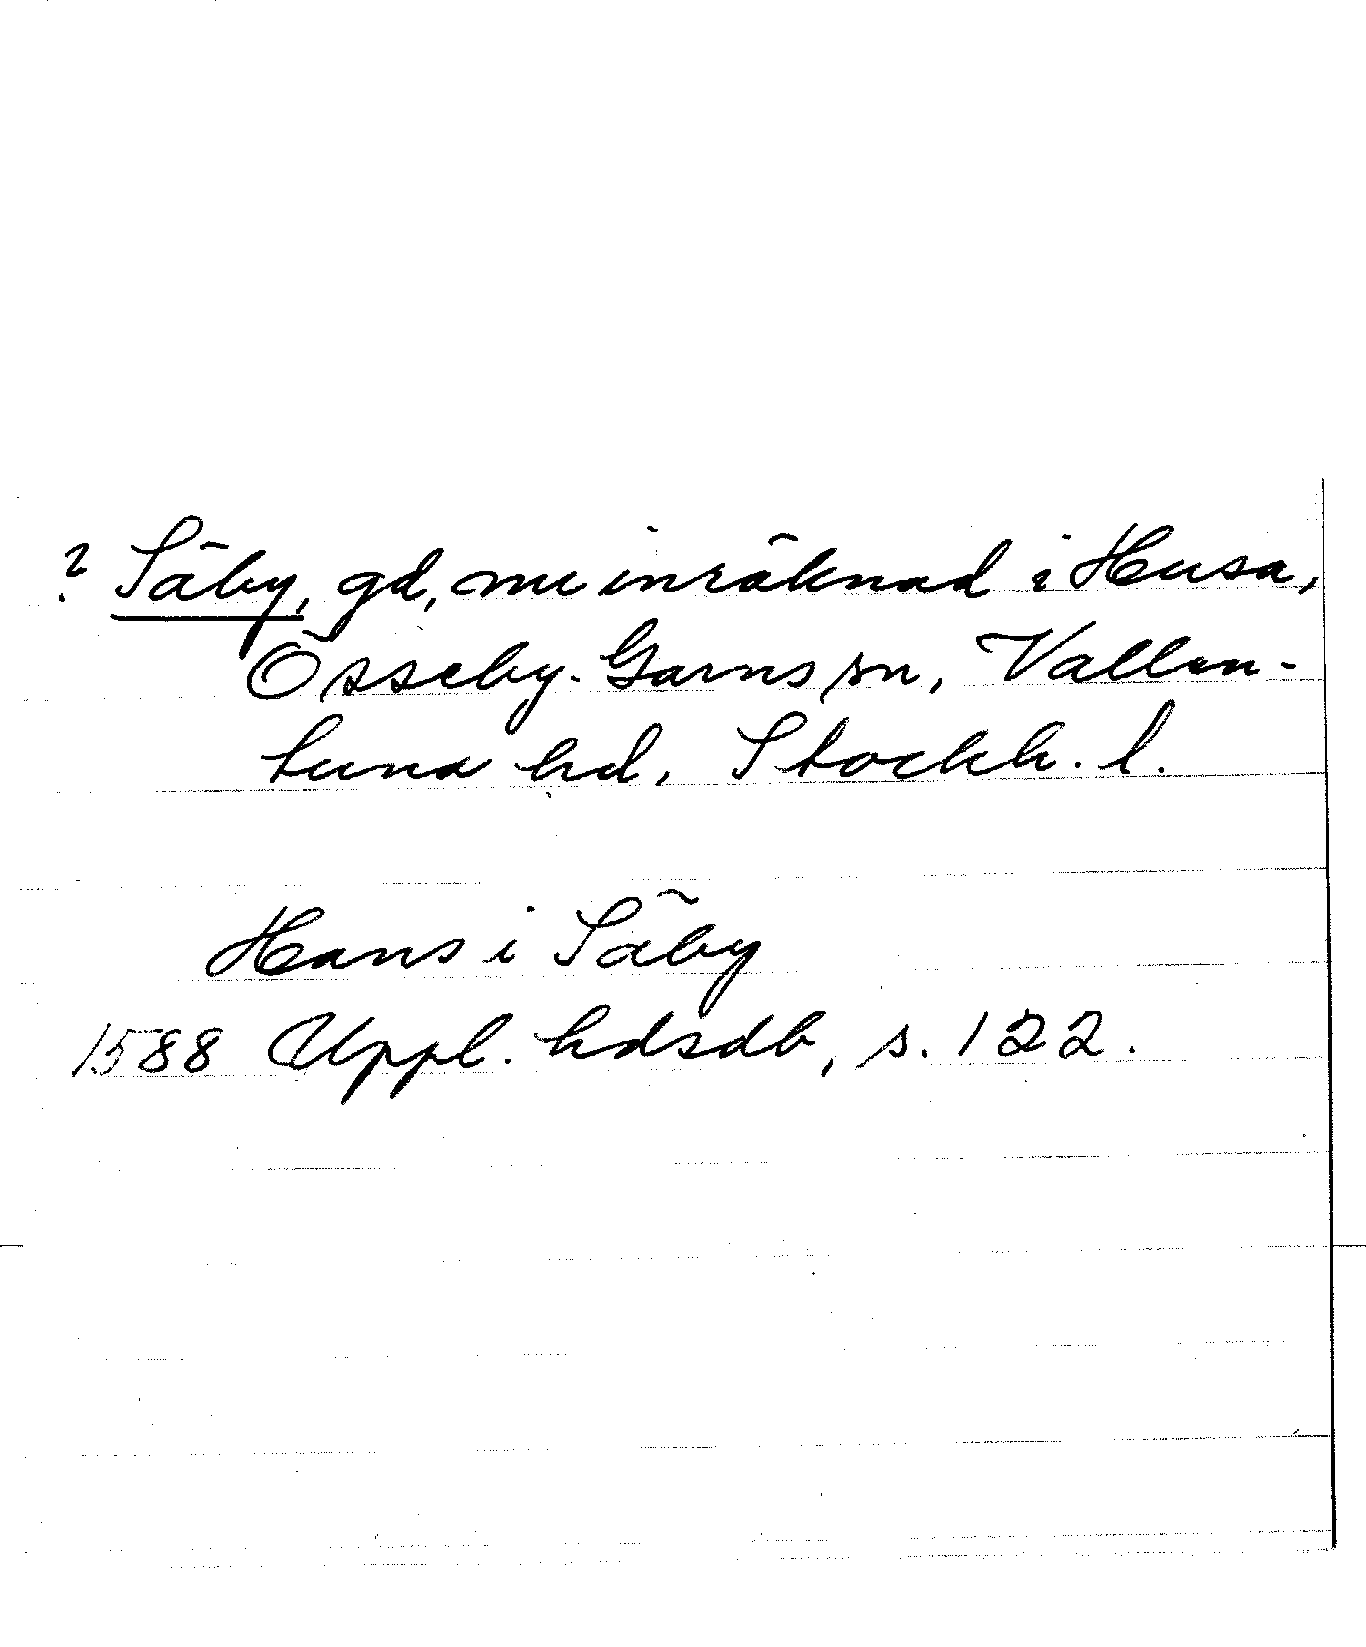 ? Säby, gd, nu inräknad i Husa,
Össeby-Garns sn, Vallen-
tuna hd, Stockh. l.
Hans i Säby
1588 Uppl. hdsdb, s. 122.